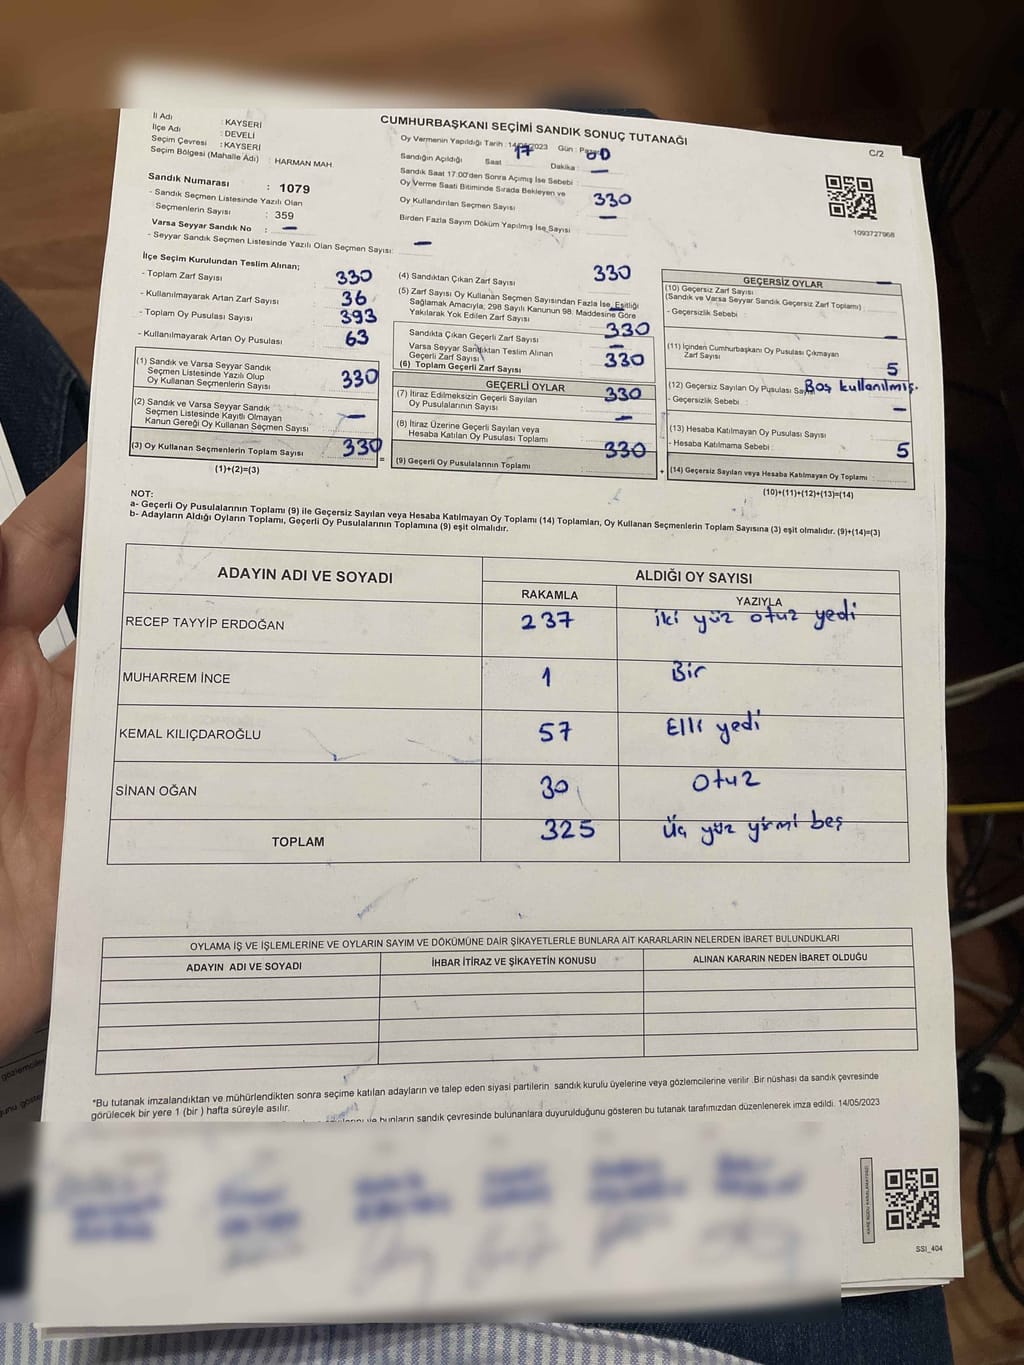 İl Adı : KAYSERİ
İlçe Adı : DEVELİ
Seçim Çevresi : KAYSERİ
Seçim Bölgesi (Mahalle Adı) : HARMAN MAH.
Sandık Numarası : 1079
- Sandık Seçmen Listesinde Yazılı Olan
Seçmenlerin Sayısı : 359
Varsa Seyyar Sandık No : —
- Seyyar Sandık Seçmen Listesinde Yazılı Olan Seçmen Sayısı: —
CUMHURBAŞKANI SEÇİMİ SANDIK SONUÇ TUTANAĞI
C/2
Oy Vermenin Yapıldığı Tarih :14/05/2023 Gün : Pazar
Sandığın Açıldığı Saat 17 Dakika : 00
Sandık Saat 17:00'den Sonra Açımış İse Sebebi : —
Oy Verme Saati Bitiminde Sırada Bekleyen ve
Oy Kullandırılan Seçmen Sayısı 330
Birden Fazla Sayım Döküm Yapılmış İse Sayısı —
1093727968
İlçe Seçim Kurulundan Teslim Alınan;
- Toplam Zarf Sayısı : 330
- Kullanılmayarak Artan Zarf Sayısı : 36
- Toplam Oy Pusulası Sayısı : 393
- Kullanılmayarak Artan Oy Pusulası : 63
(1) Sandık ve Varsa Seyyar Sandık
Seçmen Listesinde Yazılı Olup
Oy Kullanan Seçmenlerin Sayısı 330
(2) Sandık ve Varsa Seyyar Sandık
Seçmen Listesinde Kayıtlı Olmayan
Kanun Gereği Oy Kullanan Seçmen Sayısı —
(3) Oy Kullanan Seçmenlerin Toplam Sayısı 330
(1)+(2)=(3)
=
(4) Sandıktan Çıkan Zarf Sayısı 330
(5) Zarf Sayısı Oy Kullanan Seçmen Sayısından Fazla İse, Eşitliği
Sağlamak Amacıyla; 298 Sayılı Kanunun 98. Maddesine Göre
Yakılarak Yok Edilen Zarf Sayısı —
Sandıkta Çıkan Geçerli Zarf Sayısı 330
Varsa Seyyar Sandıktan Teslim Alınan
Geçerli Zarf Sayısı —
(6) Toplam Geçerli Zarf Sayısı 330
GEÇERLİ OYLAR
(7) İtiraz Edilmeksizin Geçerli Sayılan
Oy Pusulalarının Sayısı 330
(8) İtiraz Üzerine Geçerli Sayılan veya
Hesaba Katılan Oy Pusulası Toplamı —
(9) Geçerli Oy Pusulalarının Toplamı 330
+
GEÇERSİZ OYLAR
(10) Geçersiz Zarf Sayısı —
(Sandık ve Varsa Seyyar Sandık Geçersiz Zarf Toplamı) :
- Geçersizlik Sebebi :
(11) İçinden Cumhurbaşkanı Oy Pusulası Çıkmayan
Zarf Sayısı —
5
(12) Geçersiz Sayılan Oy Pusulası Sayısı
- Geçersizlik Sebebi : Boş kullanılmış.
(13) Hesaba Katılmayan Oy Pusulası Sayısı —
- Hesaba Katılmama Sebebi :
(14) Geçersiz Sayılan veya Hesaba Katılmayan Oy Toplamı : 5
(10)+(11)+(12)+(13)=(14)
NOT:
a- Geçerli Oy Pusulalarının Toplamı (9) ile Geçersiz Sayılan veya Hesaba Katılmayan Oy Toplamı (14) Toplamları, Oy Kullanan Seçmenlerin Toplam Sayısına (3) eşit olmalıdır. (9)+(14)=(3)
b- Adayların Aldığı Oyların Toplamı, Geçerli Oy Pusulalarının Toplamına (9) eşit olmalıdır.
ADAYIN ADI VE SOYADI ALDIĞI OY SAYISI
RAKAMLA YAZIYLA
RECEP TAYYİP ERDOĞAN 237 iki yüz otuz yedi
MUHARREM İNCE 1 Bir
KEMAL KILIÇDAROĞLU 57 Elli yedi
SİNAN OĞAN 30 Otuz
TOPLAM 325 Üç yüz yirmi beş
OYLAMA İŞ VE İŞLEMLERİNE VE OYLARIN SAYIM VE DÖKÜMÜNE DAİR ŞİKAYETLERLE BUNLARA AİT KARARLARIN NELERDEN İBARET BULUNDUKLARI
ADAYIN ADI VE SOYADI İHBAR İTİRAZ VE ŞİKAYETİN KONUSU ALINAN KARARIN NEDEN İBARET OLDUĞU
*Bu tutanak imzalandıktan ve mühürlendikten sonra seçime katılan adayların ve talep eden siyasi partilerin sandık kurulu üyelerine veya gözlemcilerine verilir .Bir nüshası da sandık çevresinde
görülecek bir yere 1 (bir ) hafta süreyle asılır.
ve bunların sandık çevresinde bulunanlara duyurulduğunu gösteren bu tutanak tarafımızdan düzenlenerek imza edildi. 14/05/2023
SSI_404